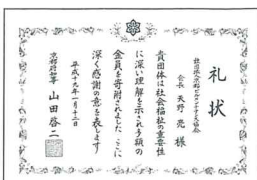 礼状
会長 天野 亮 様
貴団体は社会福祉の重要性
に深い理解を示され多額の
金員を寄附されました ここに
深く感謝の意を表します
平成十九年一月十二日
京都府知事 山田啓二